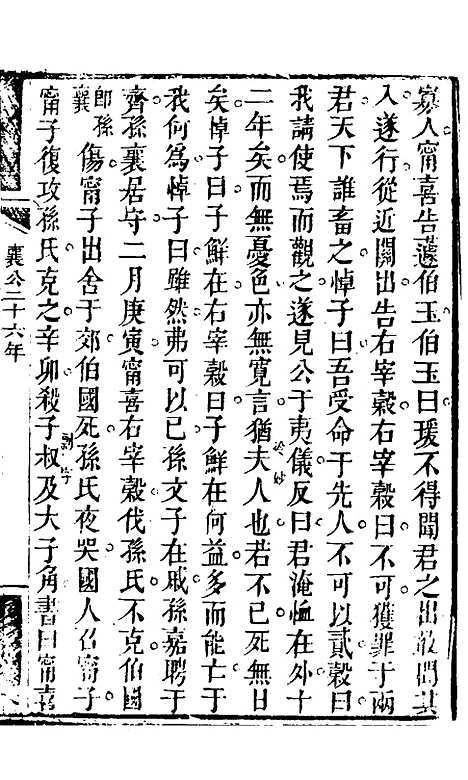 寡人甯喜告蘧伯玉伯玉曰瑗不得聞君之出敢問其
入遂行從近關出告右宰穀右宰穀曰不可獲罪于兩
君天下誰畜之悼子曰吾受命于先人不可以貳穀曰
我請使焉而觀之遂見公于夷儀反曰君淹恤在外十
二年矣而無憂色亦無寬言猶夫人也若不已死無日
矣悼子曰子鮮在右宰穀曰子鮮在何益多而能亡于
我何為悼子曰雖然弗可以已孫文子在戚孫嘉聘于
齊孫襄居守二月庚寅甯喜右宰穀伐孫氏不克伯國
即孫襄
傷甯子出舍于郊伯國死孫氏夜哭國人召甯子
甯子復攻孫氏克之辛卯殺子叔及大子角書曰甯喜
襄公二十六年